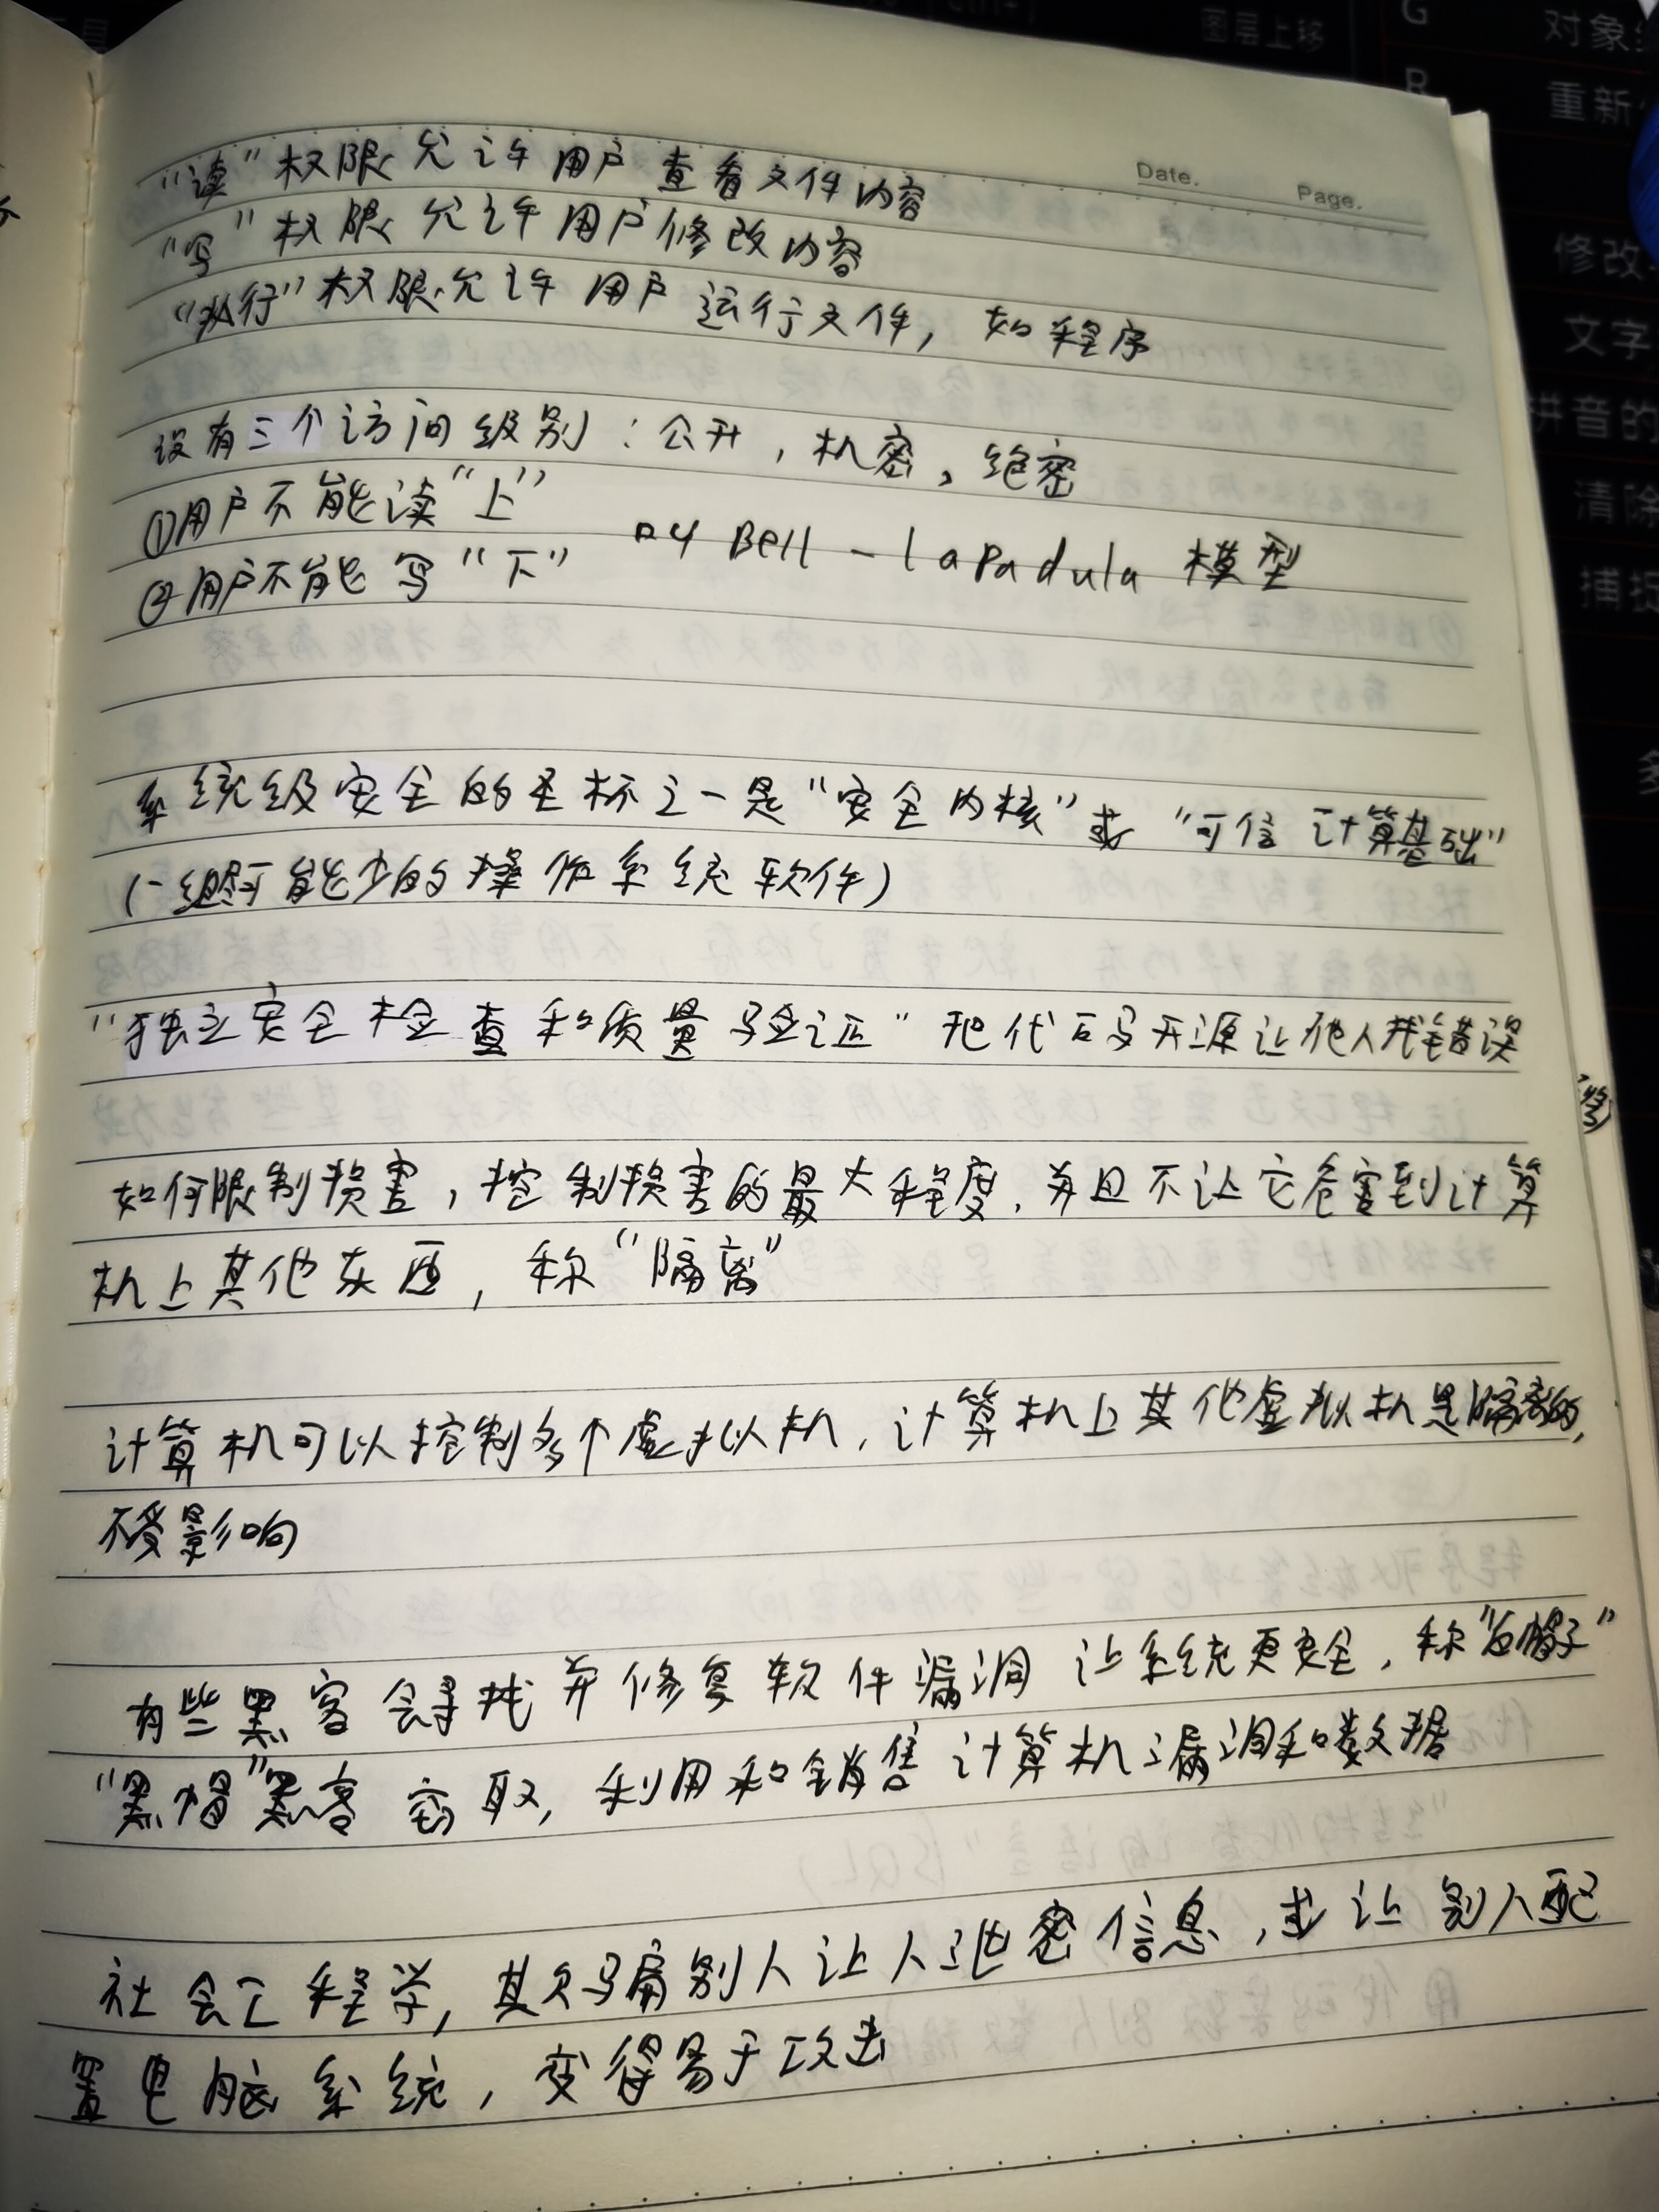 Date.
Page.
"读"权限允许用户查看文件内容
"写"权限允许用户修改内容
"执行"权限允许用户运行文件，如程序
设有三个访问级别：公开，机密，绝密
①用户不能读"上"
②用户不能写"下"
叫 Bell-lapadula 模型
系统级安全的圣杯之一是"安全内核"或"可信计算基础"
(一组尽可能少的操作系统软件)
"独立安全检查和质量验证"把代码开源让他人找错误
如何限制损害，控制损害的最大程度，并且不让它危害到计算
机上其他东西，称"隔离"
计算机可以控制多个虚拟机，计算机上其他虚拟机是隔离的，
不受影响
有些黑客会寻找并修复软件漏洞 让系统更安全，称"白帽子"
"黑帽"黑客窃取，利用和销售计算机漏洞和数据
社会工程学，其欺骗别人让人泄密信息，或让别人配
置电脑系统，变得易于攻击
图层上移
G
对象
R
重新
修改
文字
拼音的
清除
捕捉